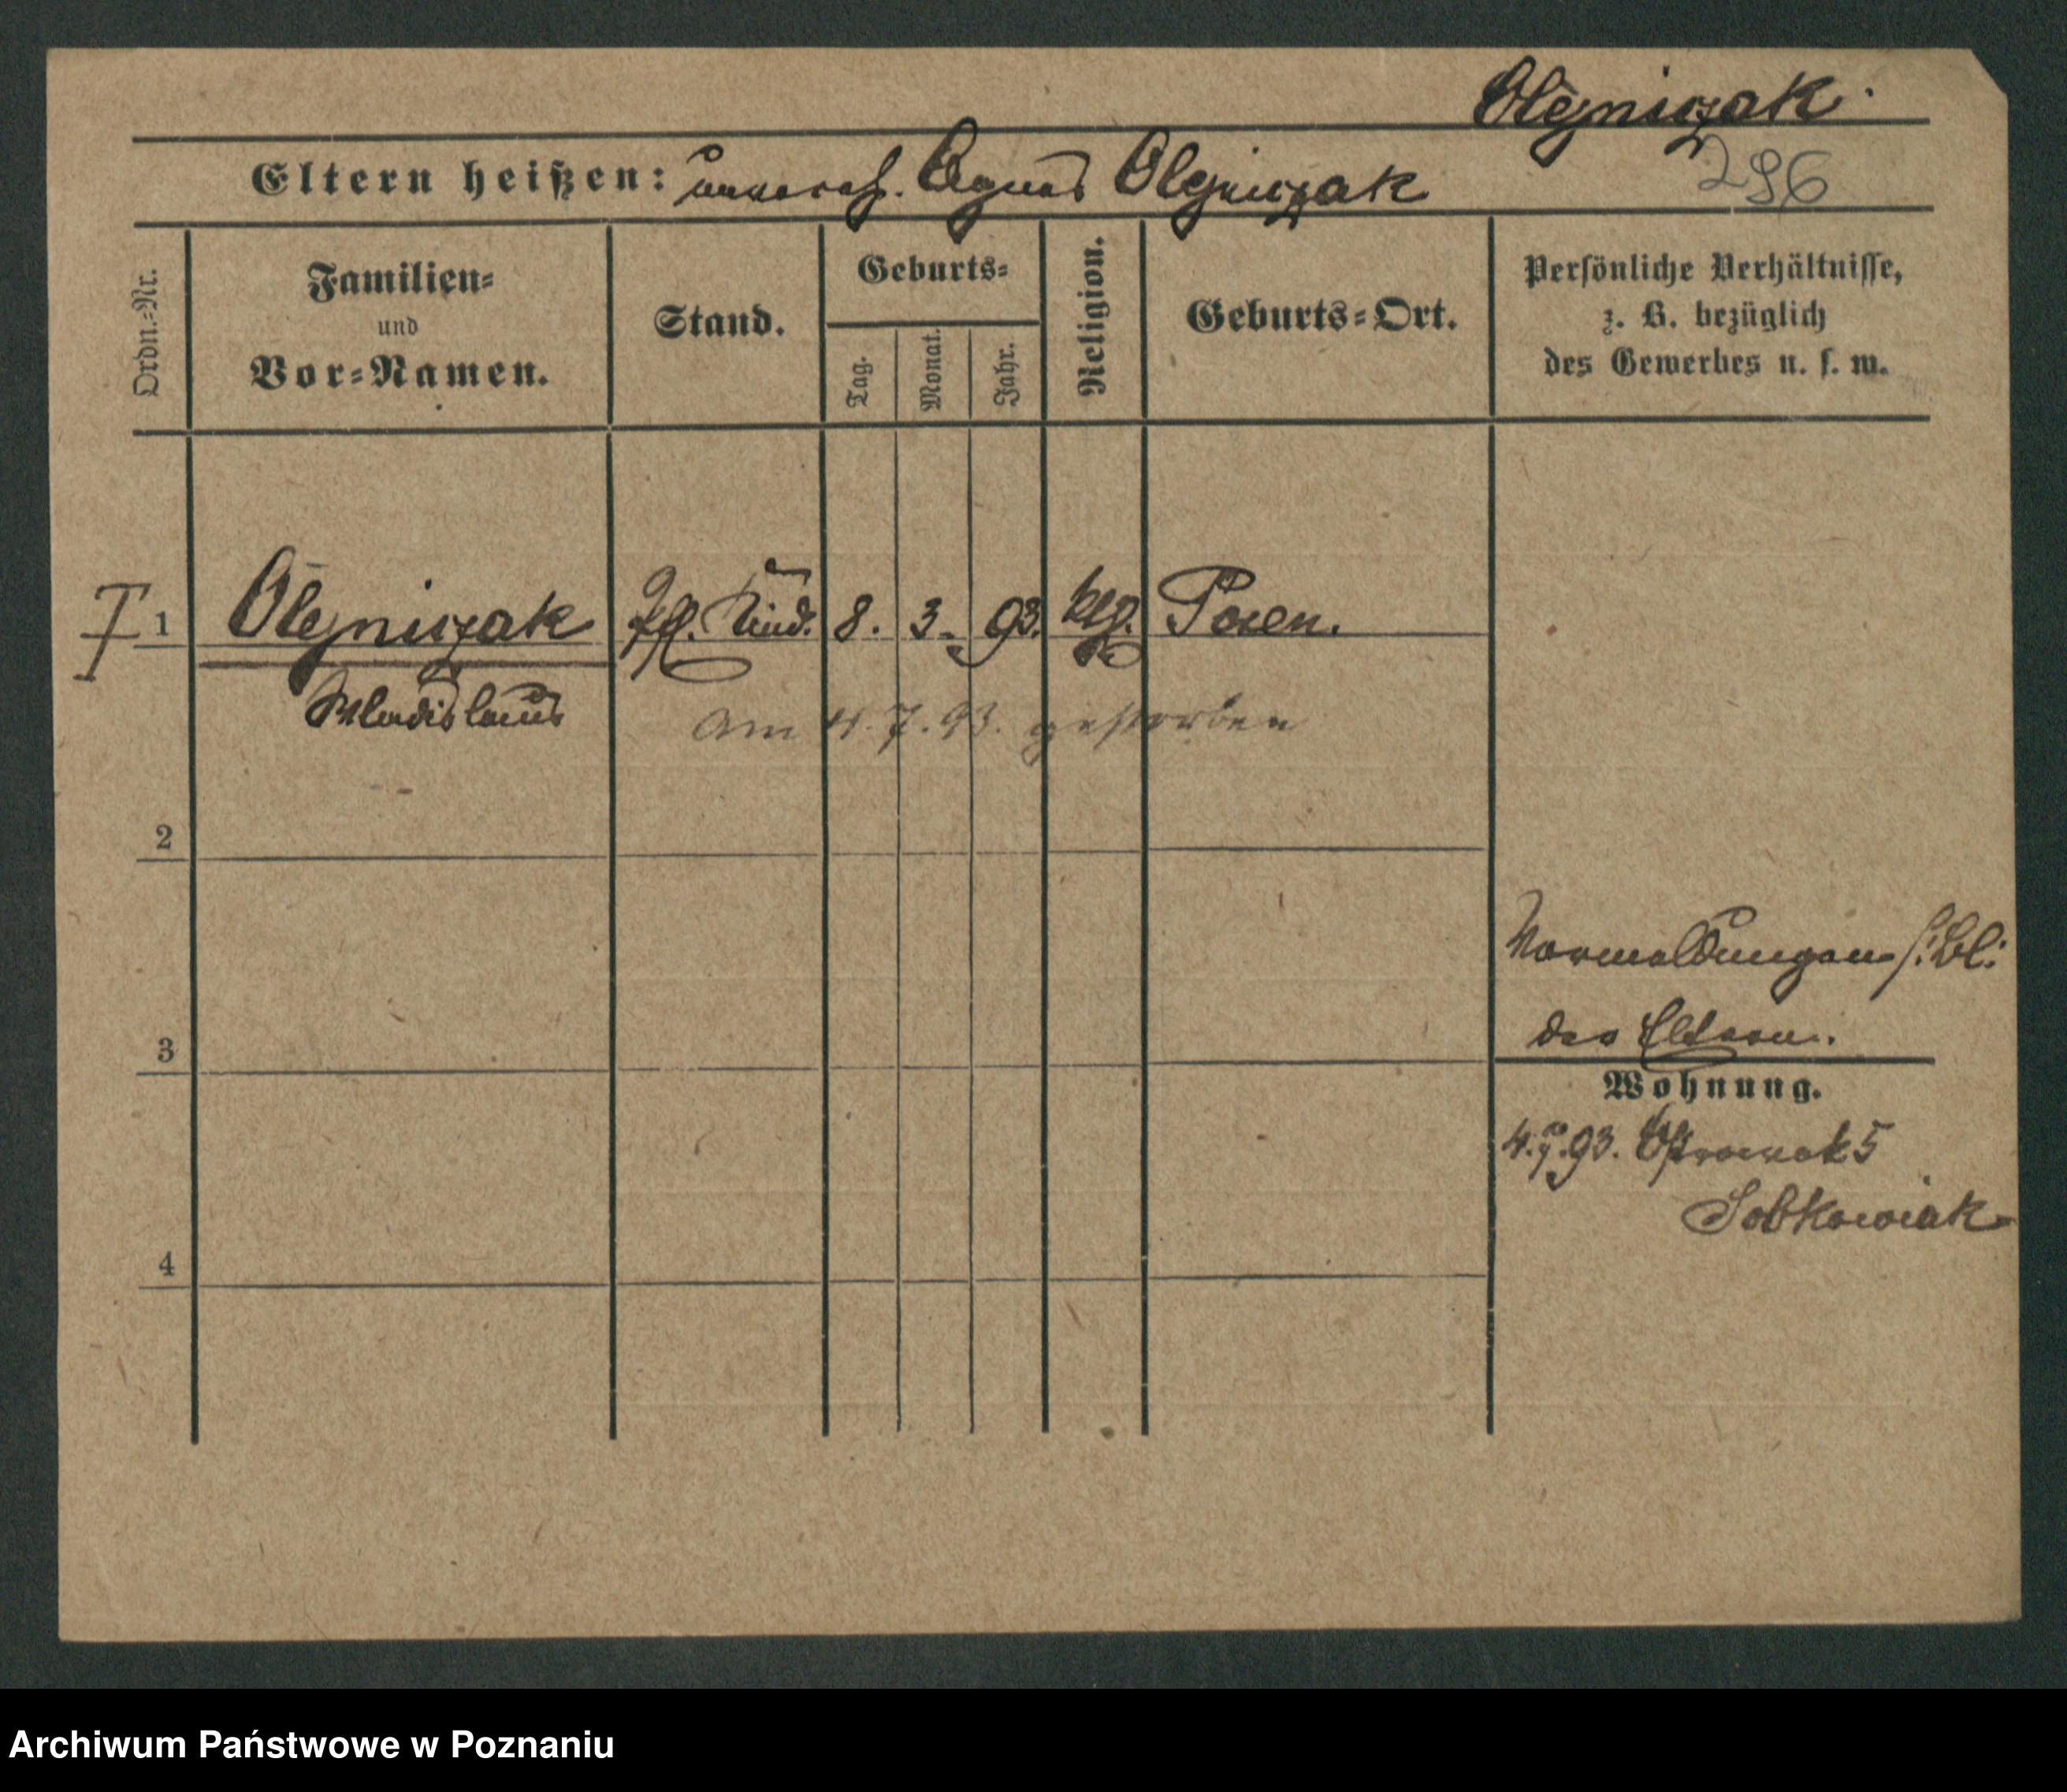 Olejniczak.
296
Eltern heißen: unvereh. Agnes Olejniczak
Ordn.=Nr.
Familien=
und
Vor=Namen.
Stand.
Geburts=
Tag.
Monat.
Jahr.
Religion.
Geburts=Ort.
Persönliche Verhältnisse,
z. B. bezüglich
des Gewerbes u. s. w.
1 Olejniczak Pfl. Kind. 8. 3. 93. ktg. Posen.
Wladislaus
am 4. 7. 93. gestorben
2
Vormeldungen s. Bl.
der Eltern.
3
Wohnung.
4.7.93. Ostrowek 5
Sobkowiak
4
Archiwum Państwowe w Poznaniu